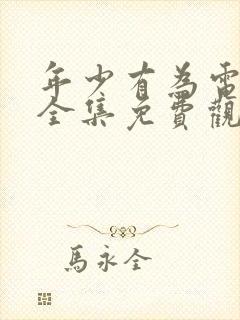 年少有為電
全集免費觀
馬永全